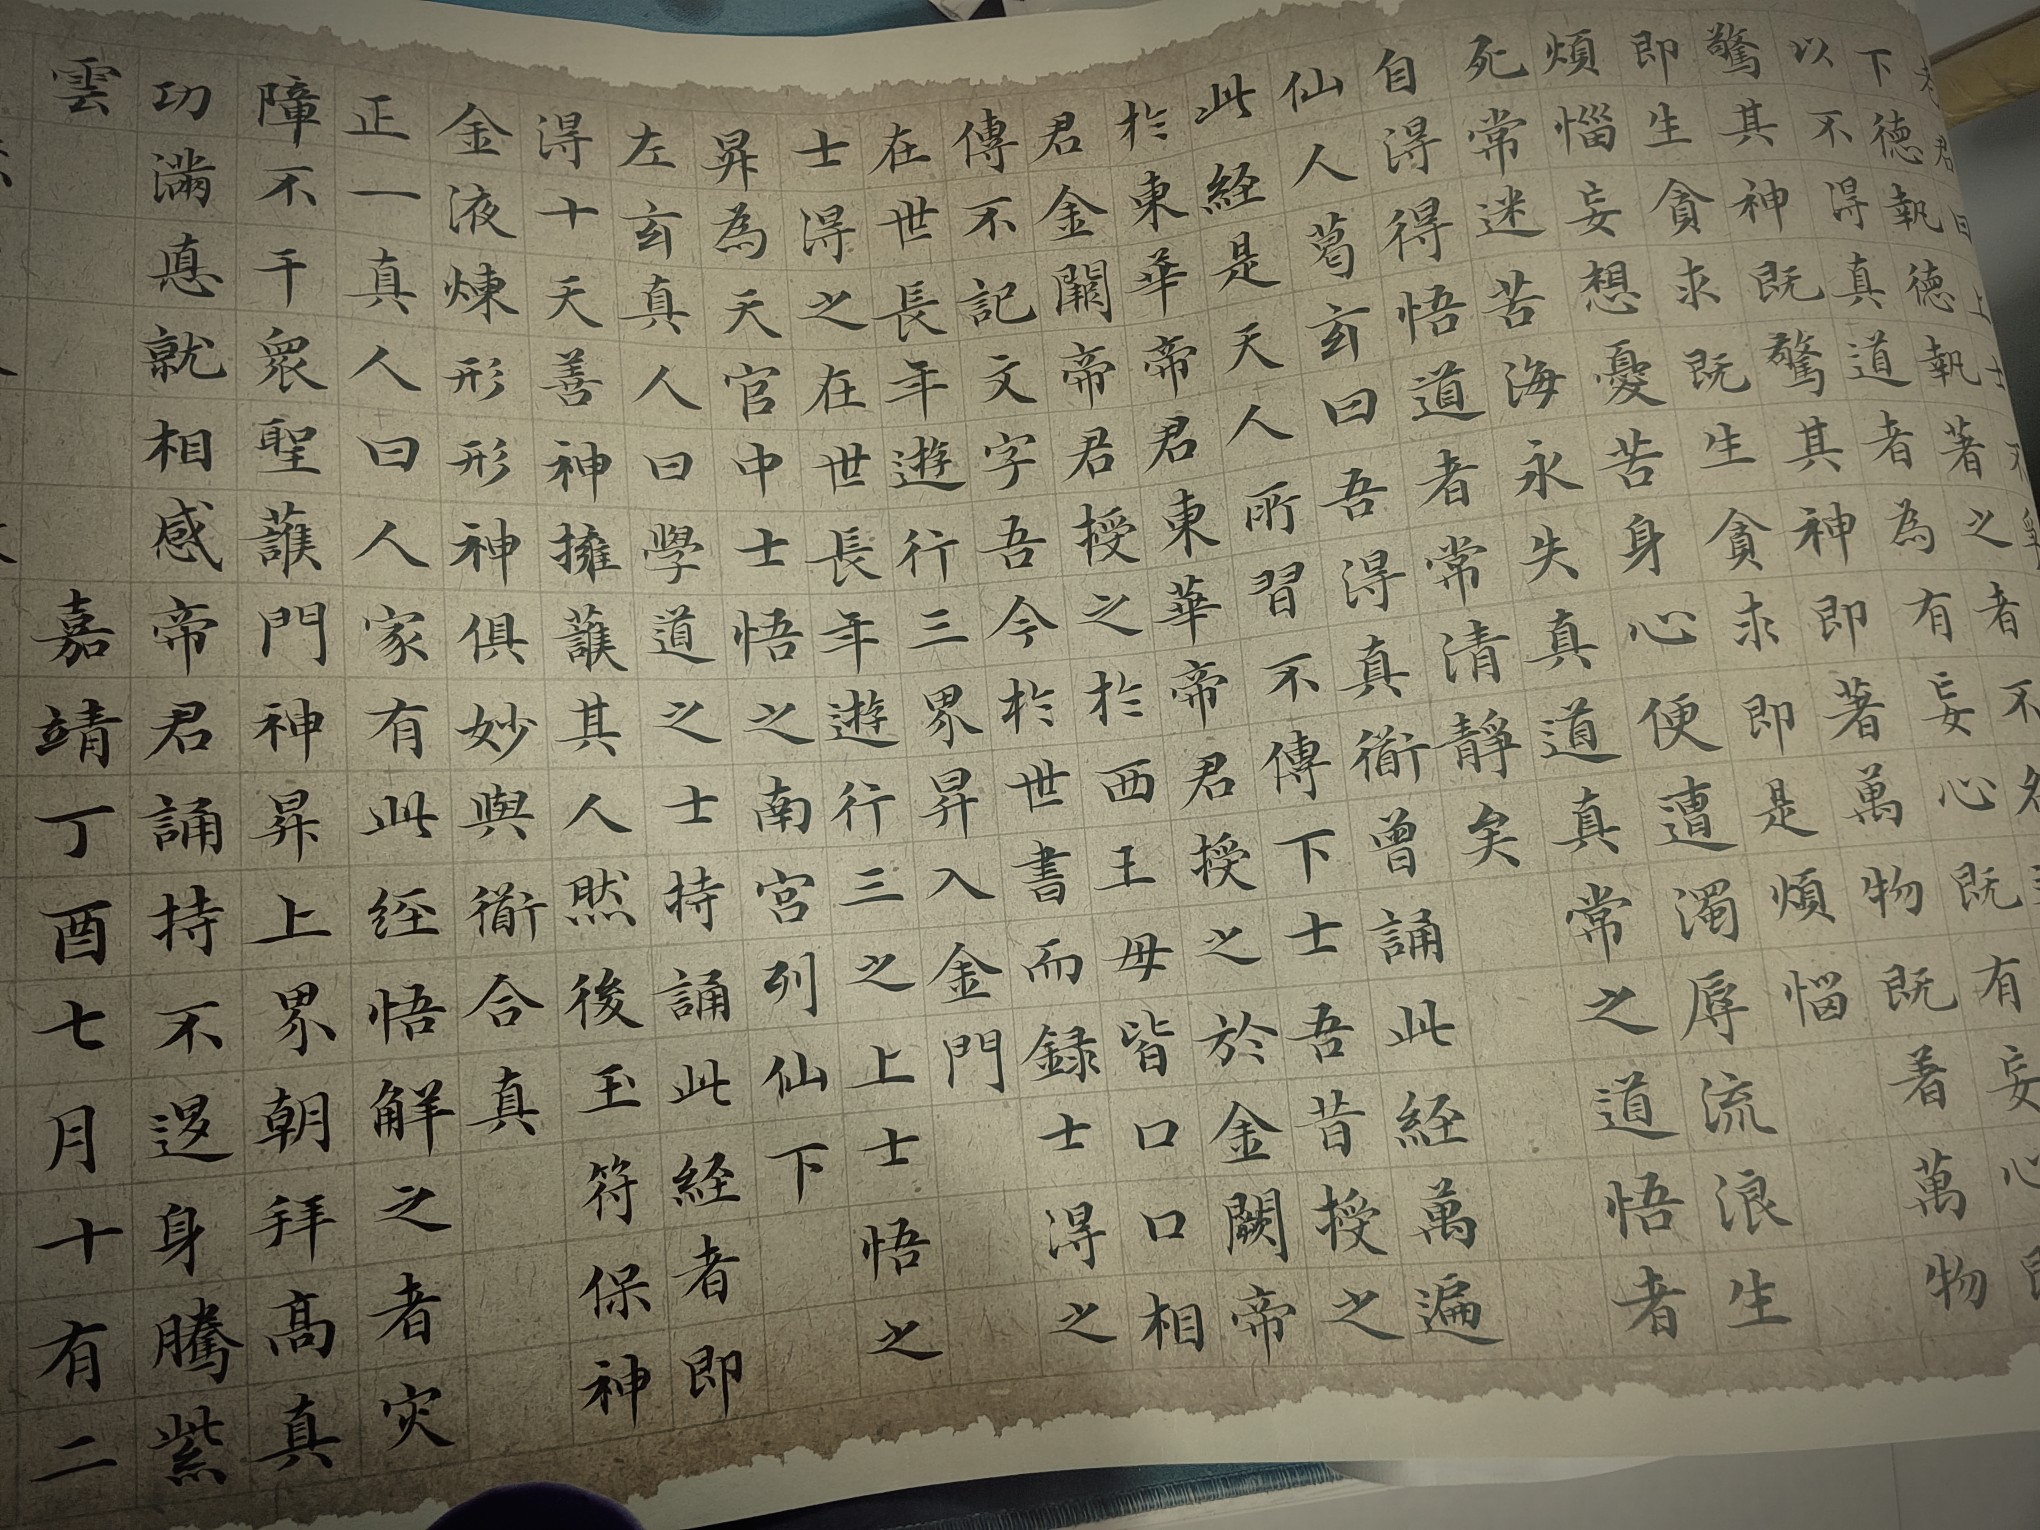 老君曰上士
下德執德執著之者不
以不得真道者為有妄心既有妄心
驚其神既驚其神即著萬物既着萬物
即生貪求既生貪求即是煩惱
煩惱妄想憂苦身心便遭濁辱流浪生
死常迷苦海永失真道真常之道悟者
自得得悟道者常清靜矣
仙人葛玄曰吾得真衜曾誦此経萬遍
此経是天人所習不傳下士吾昔授之
於東華帝君東華帝君授之於金闕帝
君金闕帝君授之於西王母皆口口相
傳不記文字吾今於世書而録士得之
在世長年遊行三界昇入金門
士得之在世長年遊行三之上士悟之
昇為天官中士悟之南宮列仙下
左玄真人曰學道之士持誦此経者即
得十天善神擁護其人然後玉符保神
金液煉形形神俱妙與衜合真
正一真人曰人家有此経悟解之者災
障不干眾聖護門神昇上界朝拜高真
功滿悳就相感帝君誦持不退身騰紫
雲 嘉靖丁酉七月十有二